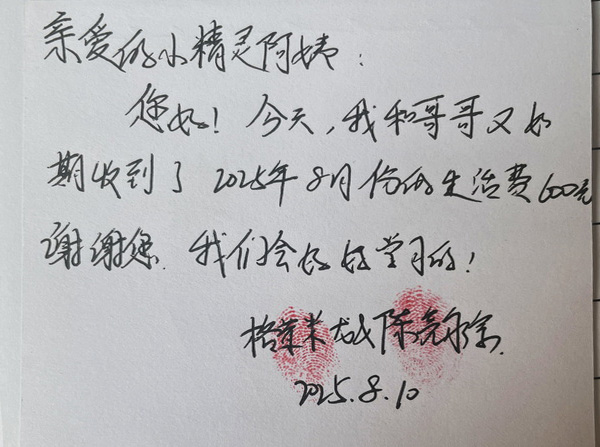 亲爱的小精灵阿姨：
您好！今天，我和哥哥又如
期收到了2025年8月份的生活费600元
谢谢您。我们会好好学习的！
格莱米 陈
2025.8.10